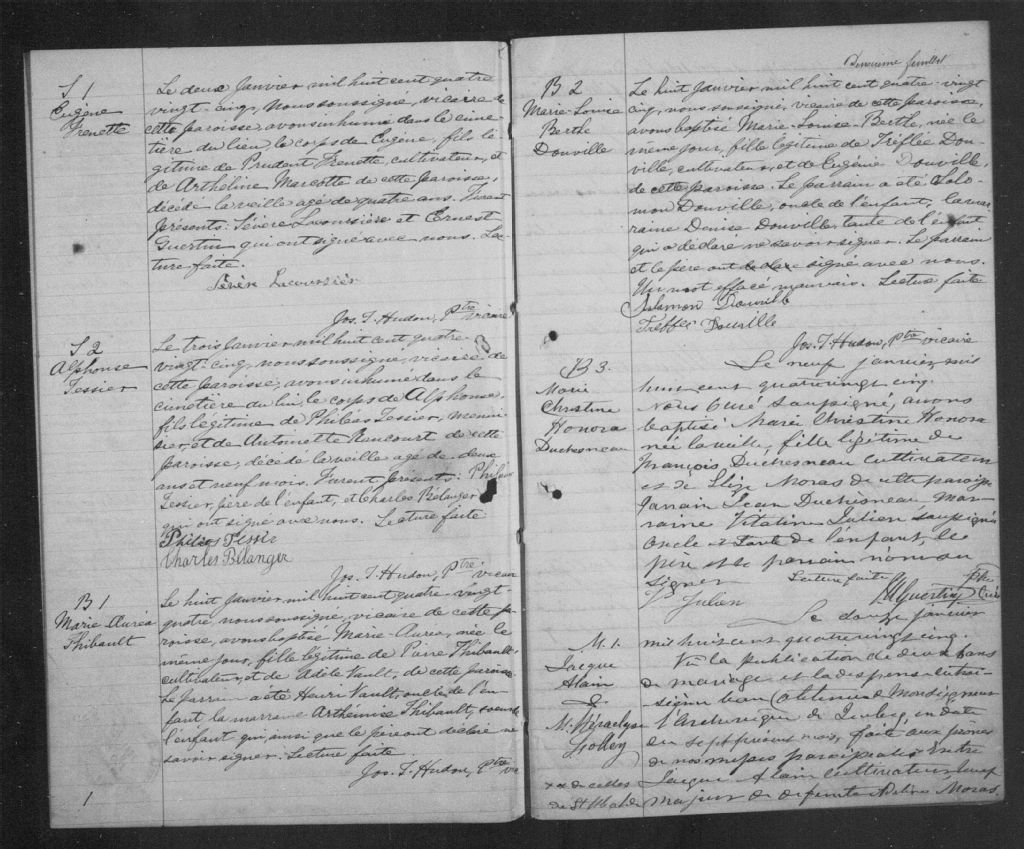 S 1
Eugène
Frenette
Le deux Janvier mil huit cent quatre
vingt-cinq, nous soussigné, vicaire de
cette paroisse, avons inhumé dans le cime-
tière du lieu le corps de Eugène, fils lé-
gitime de Prudent Frenette, cultivateur, et
de Artheline Marcotte de cette paroisse,
décédé la veille agé de quatre ans. Furent
présents: Sévère Lacoursière et Ernest
Guertin qui ont signé avec nous. Lec-
ture faite.
Sévère Lacoursier
Jos. T. Hudon, Ptre vicaire
S 2
Alphonse
Tessier
Le trois Janvier mil huit cent quatre
vingt-cinq, nous soussigné, vicaire de
cette paroisse, avons inhumé dans le
cimetière du lieu, le corps de Alphonse,
fils légitime de Philéas Tessier, menui-
sier, et de Antoinette Rencourt de cette
paroisse, décédé la veille agé de deux
ans et neuf mois. Furent présents: Philéas
Tessier, père de l'enfant, et Charles Bélanger
qui ont signé avec nous. Lecture faite
Philéas Tessier
Charles Bélanger
Jos. T. Hudon, Ptre vicaire
B 1
Marie-Auréa
Thibault
Le huit Janvier mil huit cent quatre vingt-
quatre, nous soussigné, vicaire de cette pa-
roisse, avons baptisé Marie-Auréa, née le
même jour, fille légitime de Pierre Thibault,
cultivateur, et de Adèle Vault, de cette paroisse
Le parrin a été Henri Vault, oncle de l'en-
fant la marraine Arthémise Thibault, soeur de
l'enfant qui, ainsi que le père ont déclaré ne
savoir signer. Lecture faite.
Jos. T. Hudon, Ptre vic
1
Deuxième feuillet
B 2
Marie-Louise
Berthe
Douville
Le huit Janvier mil huit cent quatre-vingt
cinq, nous soussigné, vicaire de cette paroisse,
avons baptisé Marie-Louise Berthe, née le
même jour, fille légitime de Tréflée Dou-
ville, cultivateur, et de Eugénie Douville,
de cette paroisse. Le parrain a été Salo-
mon Douville, oncle de l'enfant, la mar
raine Denise Douville, tante de l'enfant
qui a déclaré ne savoir signer. Le parrain
et le père ont signé avec nous.
Un mot effacé mauvais. Lecture faite
Salomon Douville
Trefflé Douville
Jos. T. Hudon, Ptre vicaire
B 3.
Marie
Christine
Honora
Duchesneau
Le neuf janvier mil
huit cent quatrevingt cinq.
Nous Curé soussigné, avons
baptisé Marie Christine Honora
née la veille, fille légitime de
François Duchesneau cultivateur
et de Moras de cette paroisse
Parrain Jean Duchesneau Mar-
raine Julien soussignée
Oncle et Tante de l'enfant, le
père et le parrain n'ont su
signer Lecture faite
Julien Guertin Ptr Curé
M. 1.
Jacque
Alain
&
M. Héraclyse
Le douze janvier
mil huit cent quatrevingt cinq.
Vu la publication de deux bans
de mariage et la dispense du troi-
sième ban obtenue de Monseigneur
l'Archevêque de Québec, en date
du sept présent mois, faite aux prônes
de nos messes paroissiales Entre
x x de celles
de St Ubalde
Jacque Alain cultivateur veuf
majeur de défunte Adeline Moras